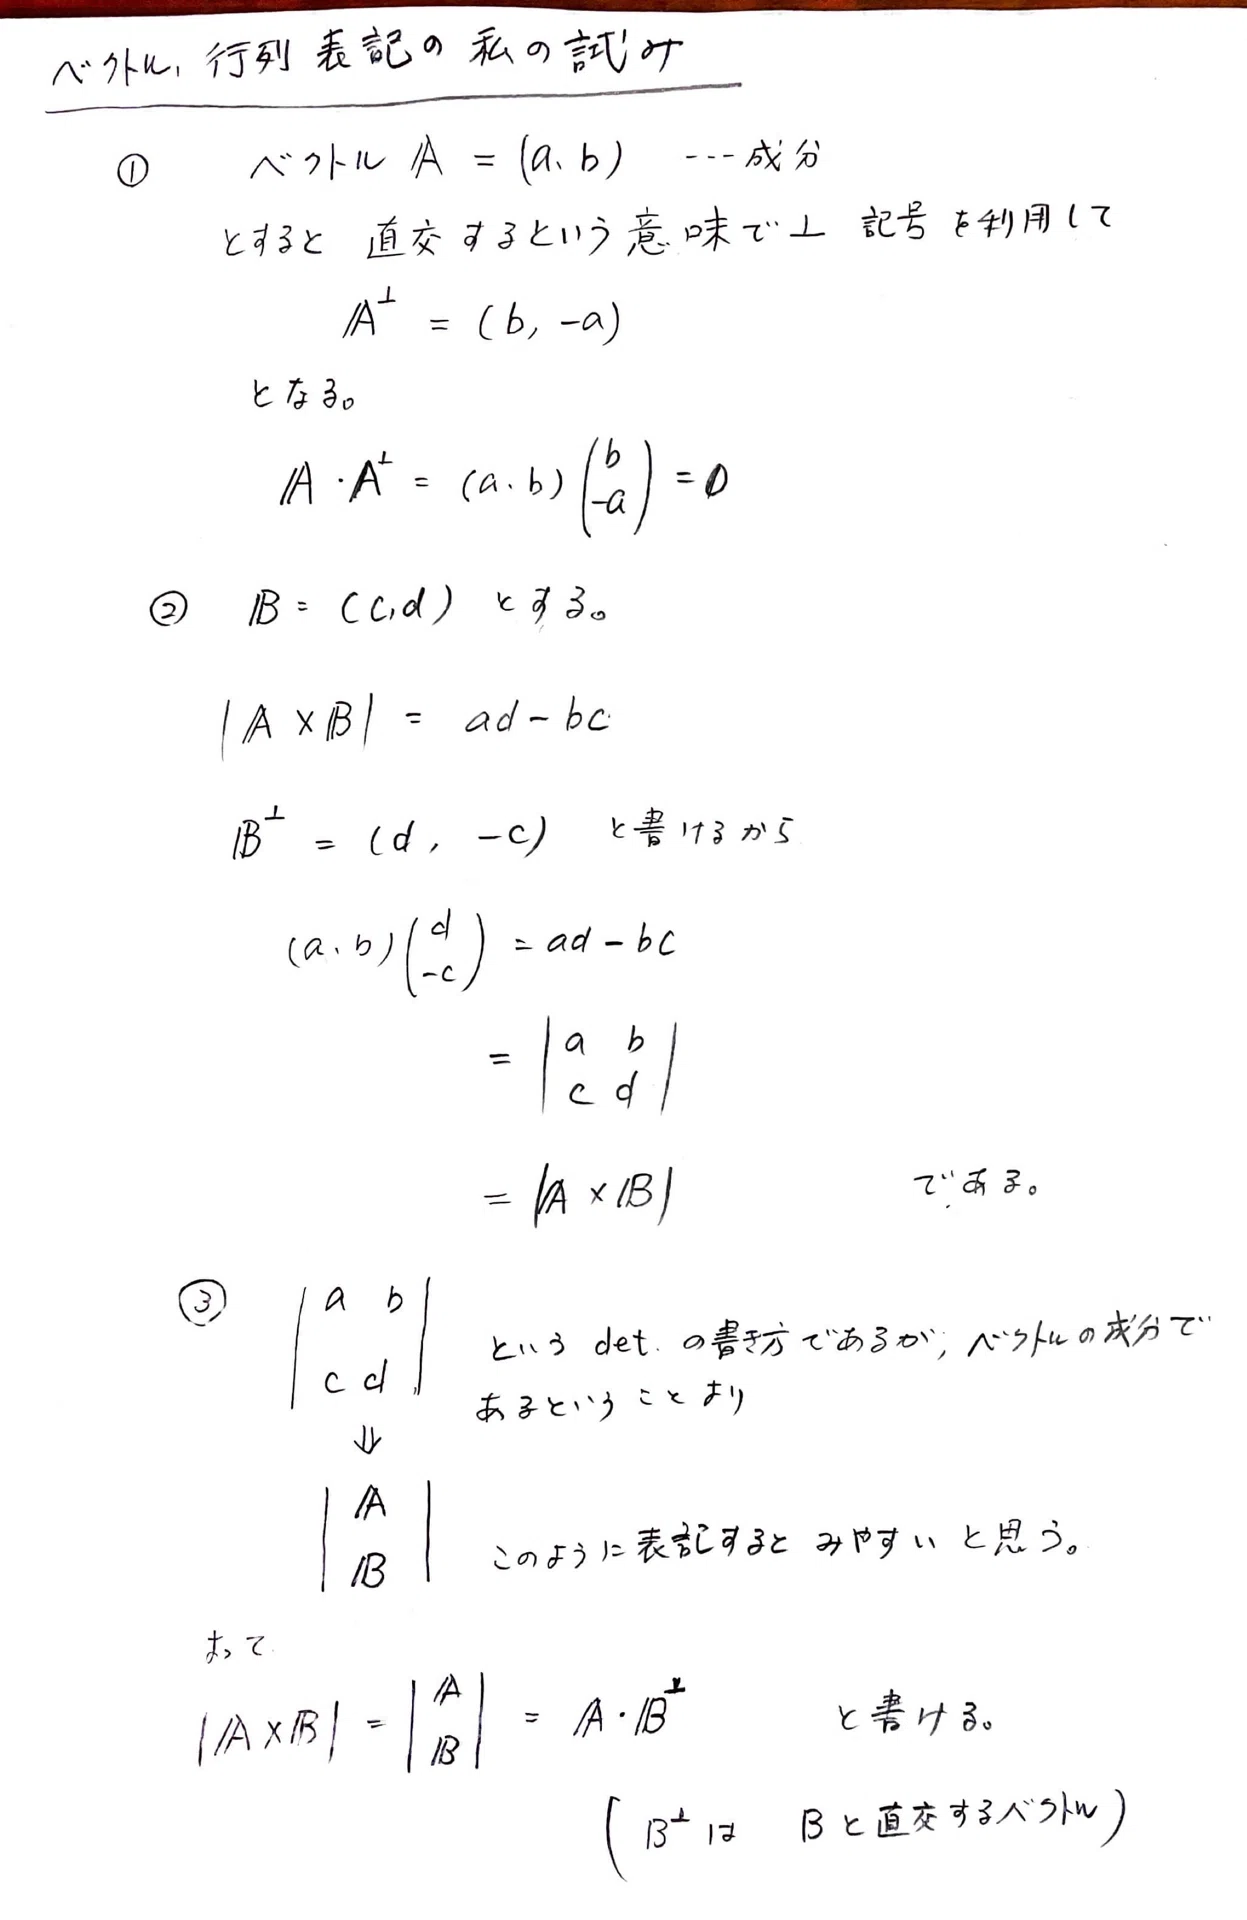 ベクトル、行列 表記の私の試み
① ベクトル 𝔸 = (a、b) ---成分
とすると 直交するという意味で⊥ 記号を利用して
𝔸⊥ = (b, -a)
となる。
𝔸・𝔸⊥ = (a、b)(b
-a) = 0
② 𝔹 = (c,d) とする。
|𝔸×𝔹| = ad-bc
𝔹⊥ = (d, -c) と書けるから
(a、b)(d
-c) = ad-bc
= |a b
c d|
= |𝔸×𝔹| である。
③ |a b
c d| という det. の書き方であるが、ベクトルの成分で
あるということより
⇓
|𝔸
𝔹| このように表記すると みやすいと思う。
よって
|𝔸×𝔹| = |𝔸
𝔹| = 𝔸・𝔹⊥ と書ける。
(𝔹⊥は 𝔹と直交するベクトル)